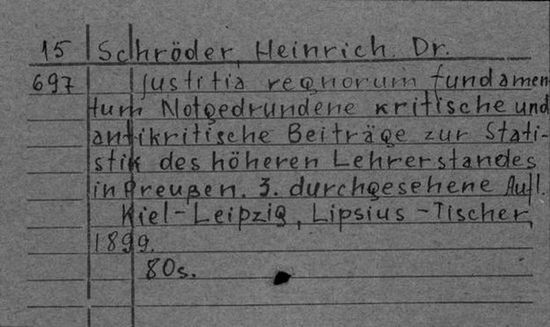 15 Schröder, Heinrich. Dr.
697 Justitia regnorum fundamen
tum Notgedrundene kritische und
antikritische Beiträge zur Stati-
stik des höheren Lehrerstandes
in Preußen. 3. durchgesehene Aufl.
Kiel-Leipzig, Lipsius-Tischer,
1899.
80s.